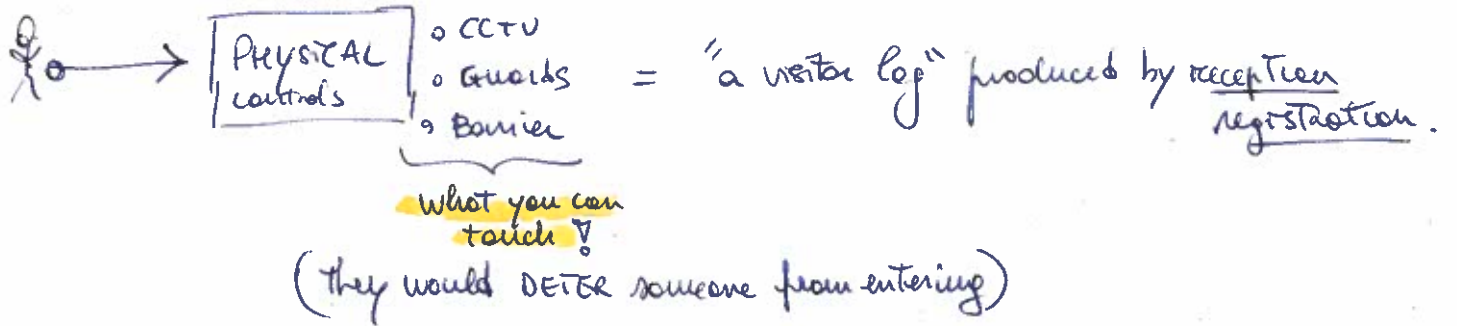 PHYSICAL controls
• CCTV
• Guards
• Barrier
= "a visitor log" produced by reception registration.
what you can
touch !
(they would DETER someone from entering)